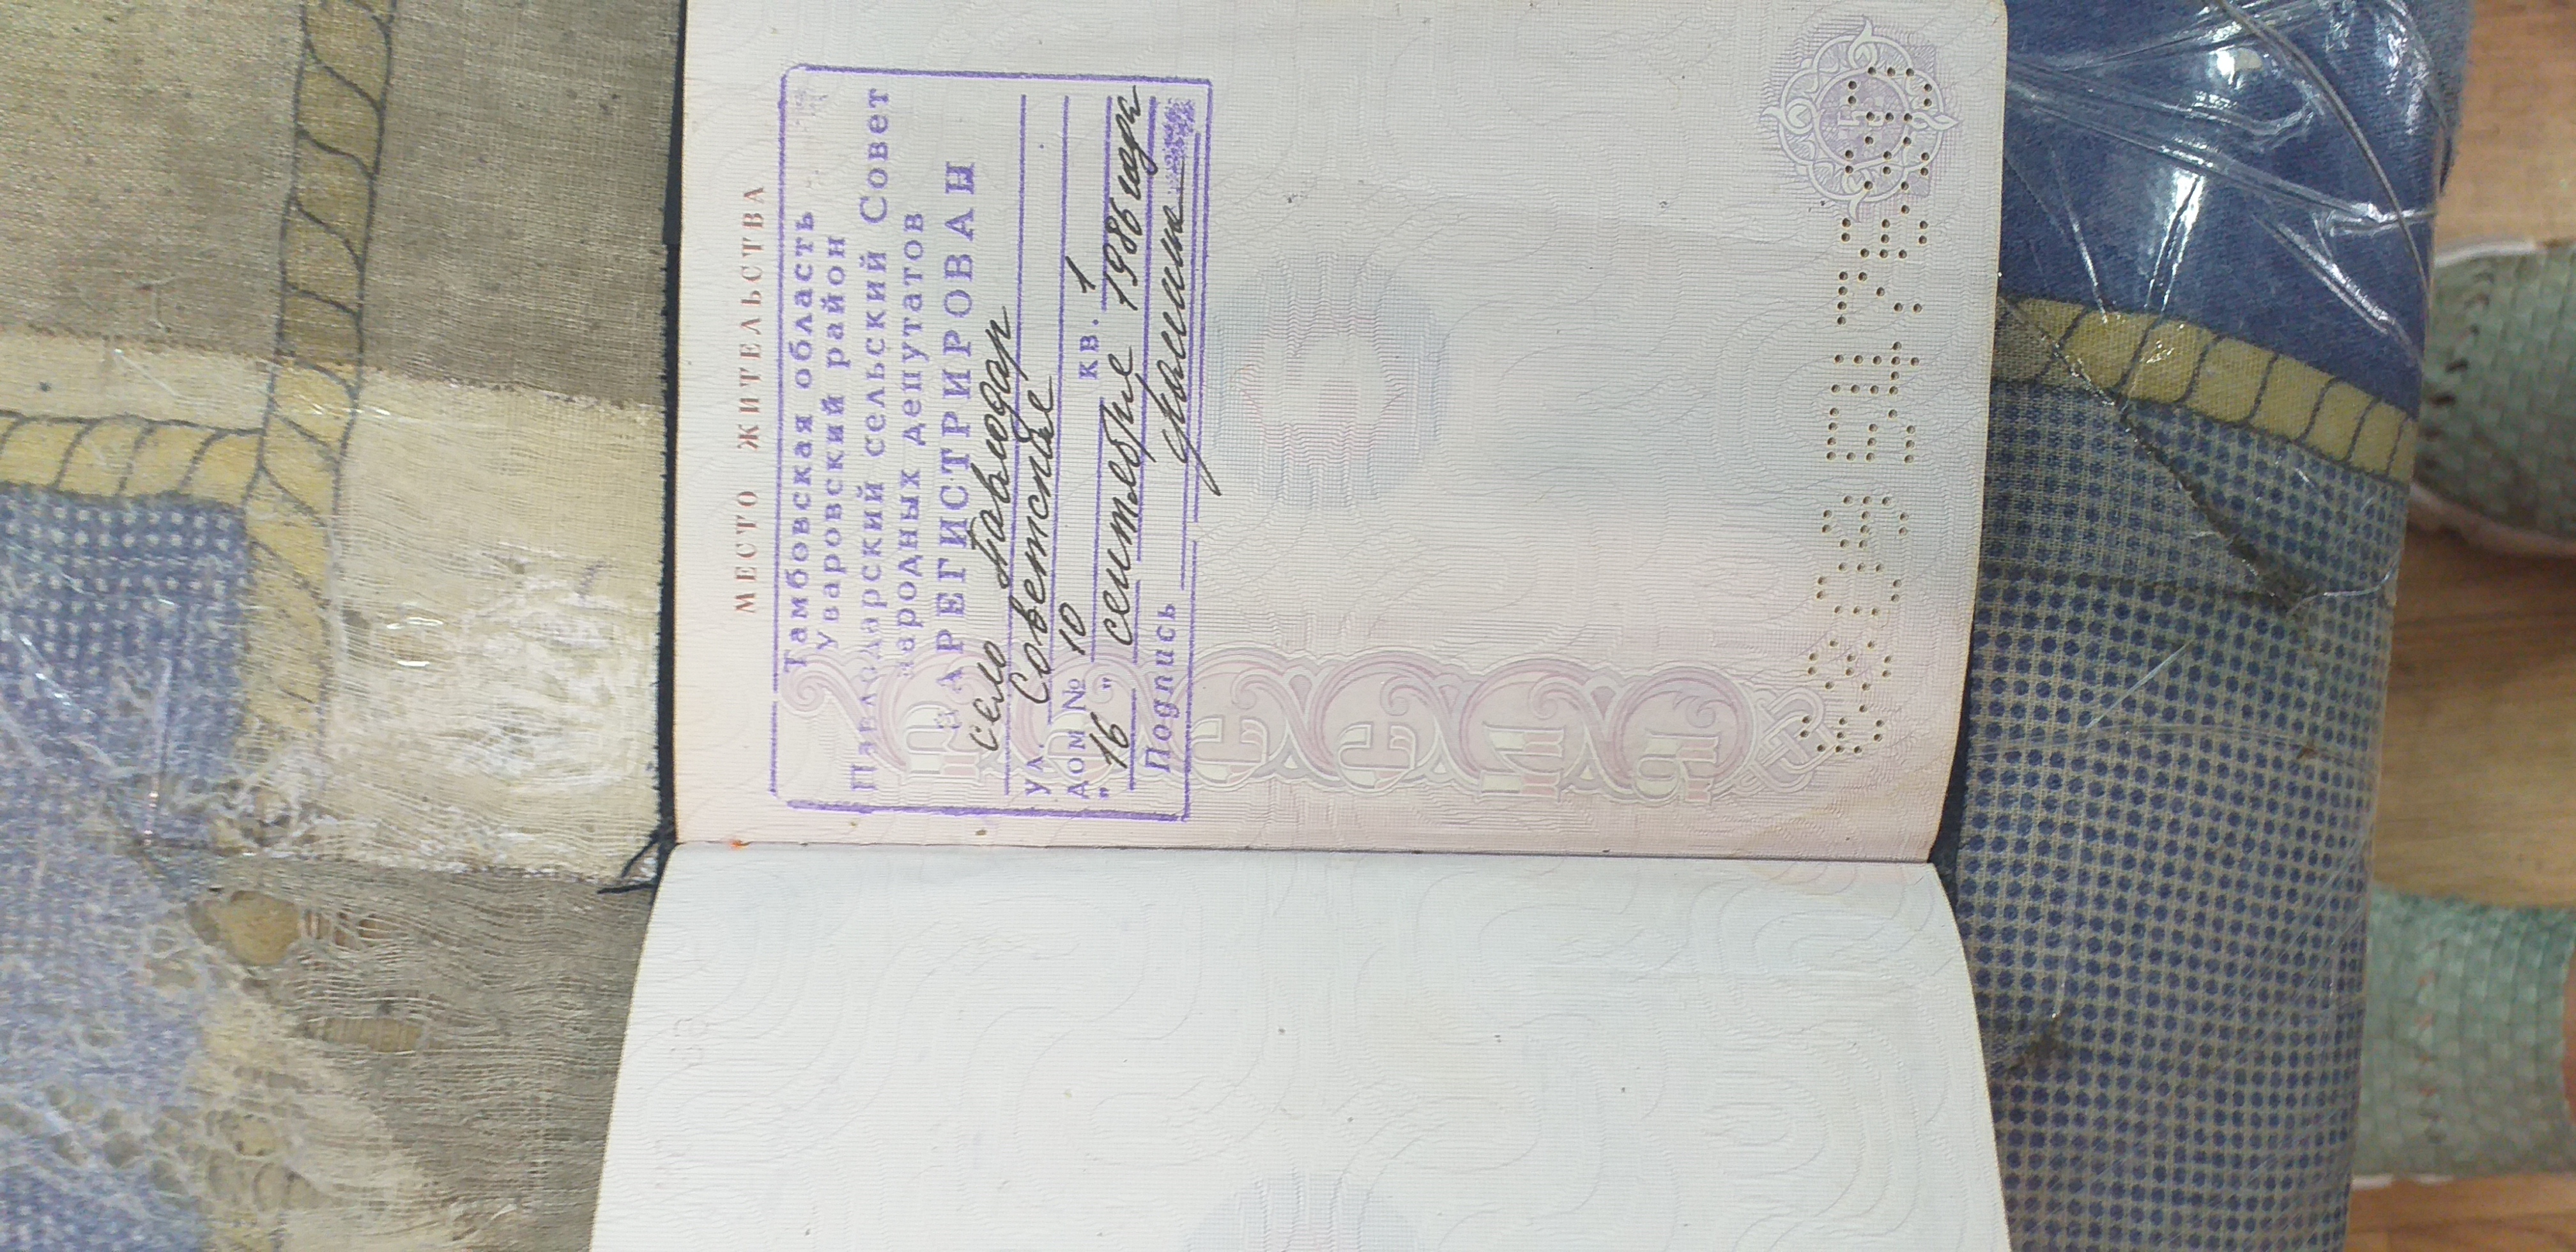 МЕСТО ЖИТЕЛЬСТВА
Тамбовская область
Уваровский район
Павлодарский сельский Совет
народных депутатов
ЗАРЕГИСТРИРОВАН
село Павлодар
ул. Советская
дом № 10 кв. 1
"16" сентября 1986 года
Подпись